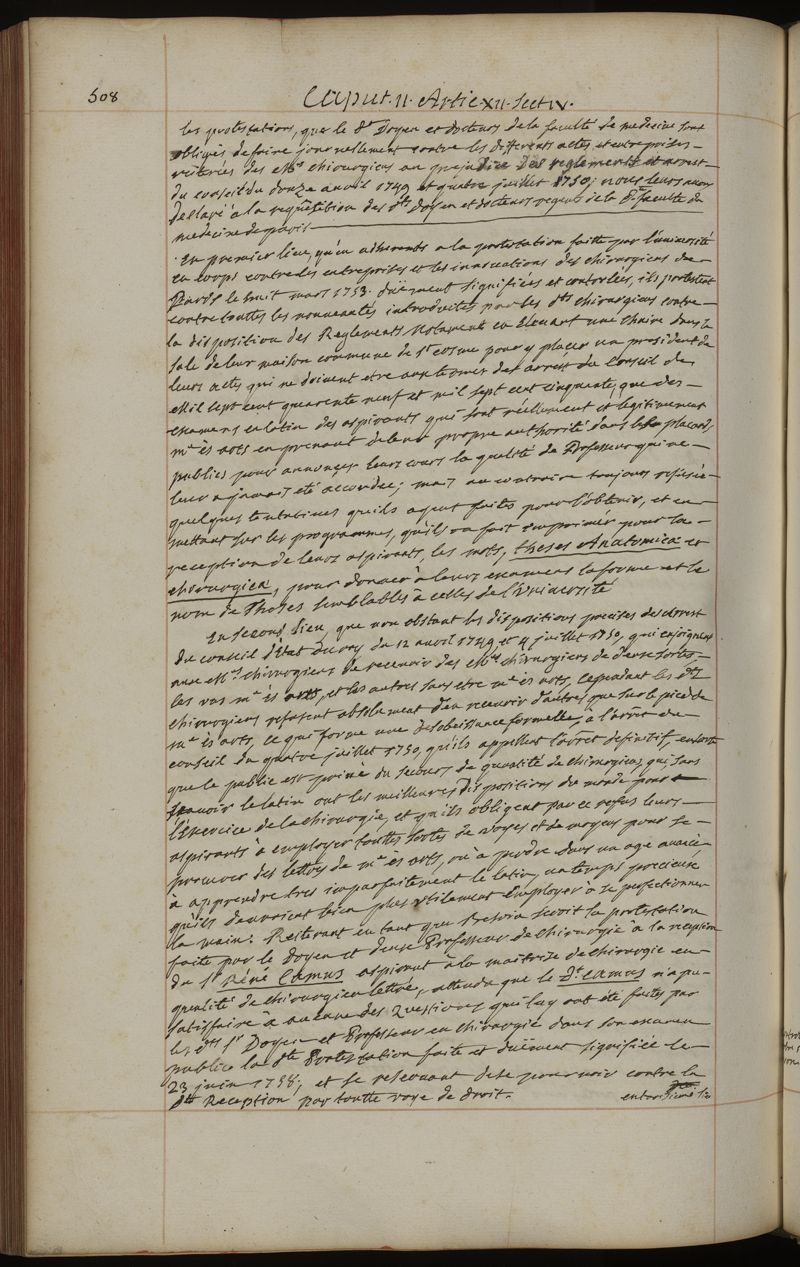 508
Caput. II. Artic XII. Sect IV.
les protestations, que le dt Doyen et docteurs de la faculté de medecine sont
obligés de faire journellement contre les differents actes et entreprises
reiterées des Mrs chirurgiens au prejudice des reglements et arrest
du conseil du douze avril 1749 et quatre juillet 1750; nous leurs avons
declaré à la requisition des dts Doyen et docteurs regents de la dte faculté de
medecine de paris
En premier lieu, qu'en adherents a la protestation faitte par l'université
en corps contre les entreprises et les innovations des chirurgiens de
Paris le huit mars 1753. duëment signifiées et controlées, ils protestent
contre touttes les nouveautés introduites par les dts chirurgiens contre
la disposition des Reglements notament en elevant une chaire dans la
sale de leur maison commune de St cosme pour y placer un president de
leurs actes qui ne doivent etre aux termes des arrest du Conseil de
Mil sept cent quarente neuf et mil sept cent cinquante, que des
examens en latin des aspirants qui sont réellement et legitimement
mes ès arts en prenant de leur propre authorité dans les placards
publics pour annonçer leurs cours la qualité de Professeur qui ne
leur a jamais eté accordée; mais au contraire toujours refusée
quelques tentatives qu'ils ayent faites pour l'obtenir, et en
mettant sur les programmes, qu'ils on fait imprimér pour la
reception de leurs aspirants, les mots, theses Anatomica et
chirurgica, pour donner à leurs examens la forme et le
nom de Theses semblables à celles de l'université
En second lieu, que non obstant les dispositions precises des arrest
du conseil d'Etat du roy du 12 avril 1749 et 4 juillet 1750, qui enjoignent
aux Mrs chirurgiens de recevoir des Mes chirurgiens de deux sortes
les uns mes ès arts, et les autres sans etre mes ès arts, cependant les dts
chirurgiens refusent absolument d'en recevoir d'autres que sur le pied de
mes ès arts, ce qui forme une desobéissance formelle à l'arrêt du
conseil du quatre juillet 1750, qu'ils appellent l'arret definitif, ensorte
que le public est privé du secours de quantité de chirurgiens, qui, sans
sçavoir le latin ont les meilleures dispositions du monde pour
l'Exercice de la chirurgie, et qu'ils obligent par ce refus leurs
aspirants à employer touttes sortes de voyes et de moyens pour se
procurer des lettres de mes ès arts, ou à perdre dans un age avancé
à apprendre tres imparfaitement le latin, un temps precieux
qu'ils devroient bien plus utilement Employer à se perfectionner
la main: Reiterant en tant que besoin seroit la protestation
faite par le Doyen et deux Professeurs de chirurgie à la reception
du Sr Réné Camus aspirant à la maitrise de chirurgie en
qualité de chirurgien lettré, attendu que le dt camus n'a pu
satisfaire à aucune des Questions qui luy ont été faites par
les dts Srs Doyen et Professeur en chirurgie dans son examen
public la dte Protestation faite et duëment signifiée le
23 juin 1758; et se reservant de se pourvoir contre la
dte Reception par toutte voye de droit.
en troisieme lieu